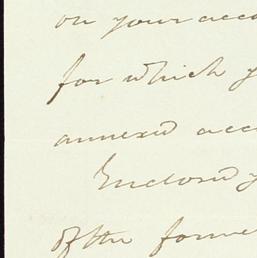 on your acco
for which y
annexed acc
Enclosed y
of the forme